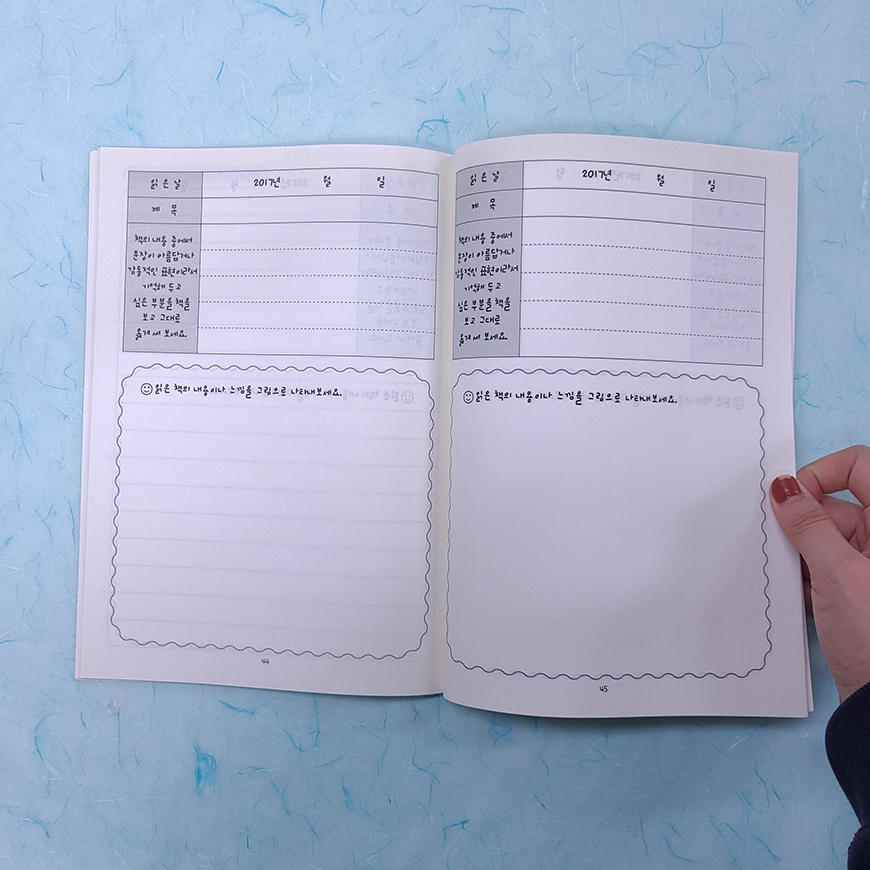 읽 은 날 2017년 월 일
제 목
책의 내용 중에서
문장이 아름답거나
감동적인 표현이라서
기억해 두고
싶은 부분을 책을
보고 그대로
옮겨 써 보세요.
읽은 책의 내용이나 느낌을 그림으로 나타내보세요.
44
읽 은 날 2017년 월 일
제 목
책의 내용 중에서
문장이 아름답거나
감동적인 표현이라서
기억해 두고
싶은 부분을 책을
보고 그대로
옮겨 써 보세요.
읽은 책의 내용이나 느낌을 그림으로 나타내보세요.
45